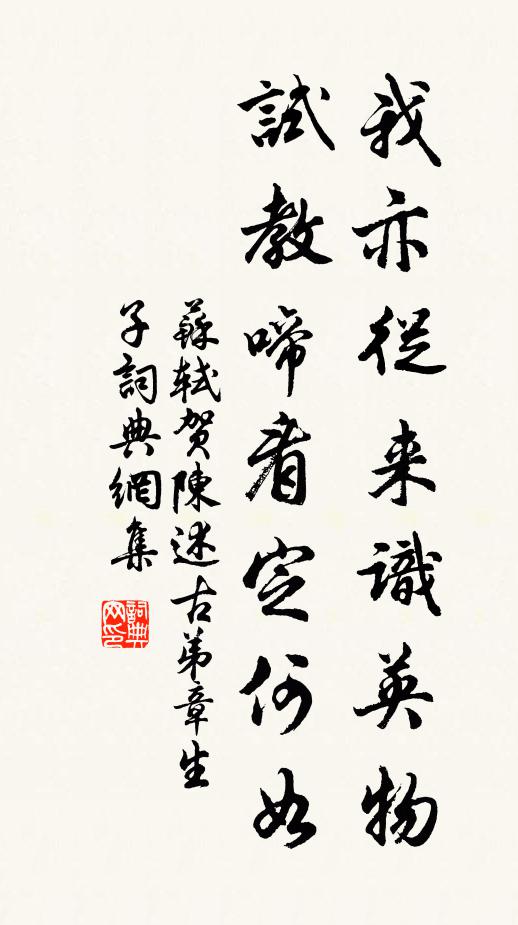 我亦從来識英物
試教啼看定何如
蘇軾賀陳述古弟章生
子詞典網集
詞典网印